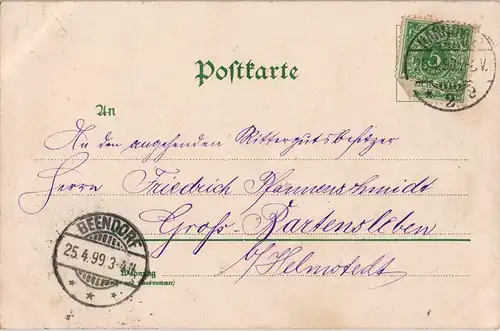 Postkarte
An
An den angehenden Rittergutsbesitzer
Herrn Friedrich Pfannenschmidt
Groß-Bartensleben
b/Helmstedt.
BEENDORF
25.4.99 3-4N
Wohnung